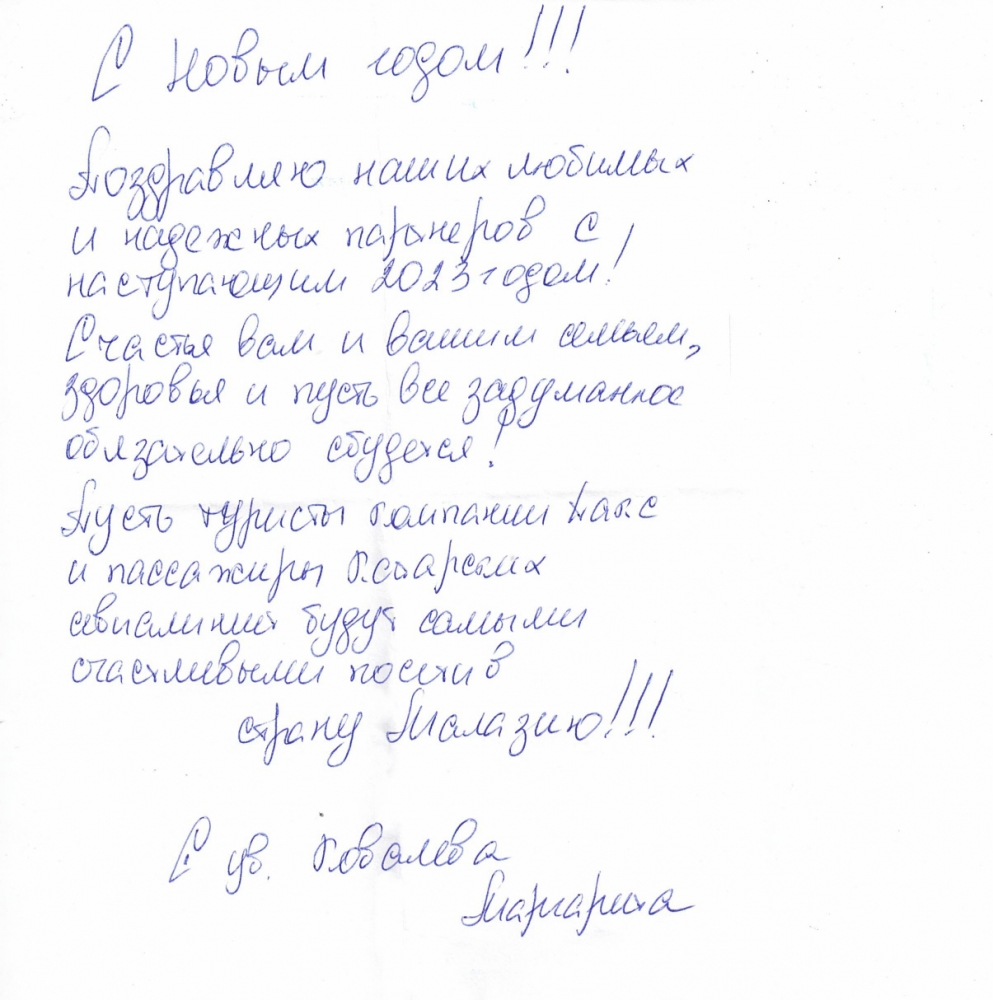 С Новым годом!!!
Поздравляю наших любимых
и надежных партнеров с
наступающим 2023 годом!
Счастья вам и вашим семьям,
здоровья и пусть все задуманное
обязательно сбудется!
Пусть туристы компании Пакс
и пассажиры Катарских
авиалиний будут самыми
счастливыми посетив
страну Малазию!!!
С ув. Ковалева
Маргарита